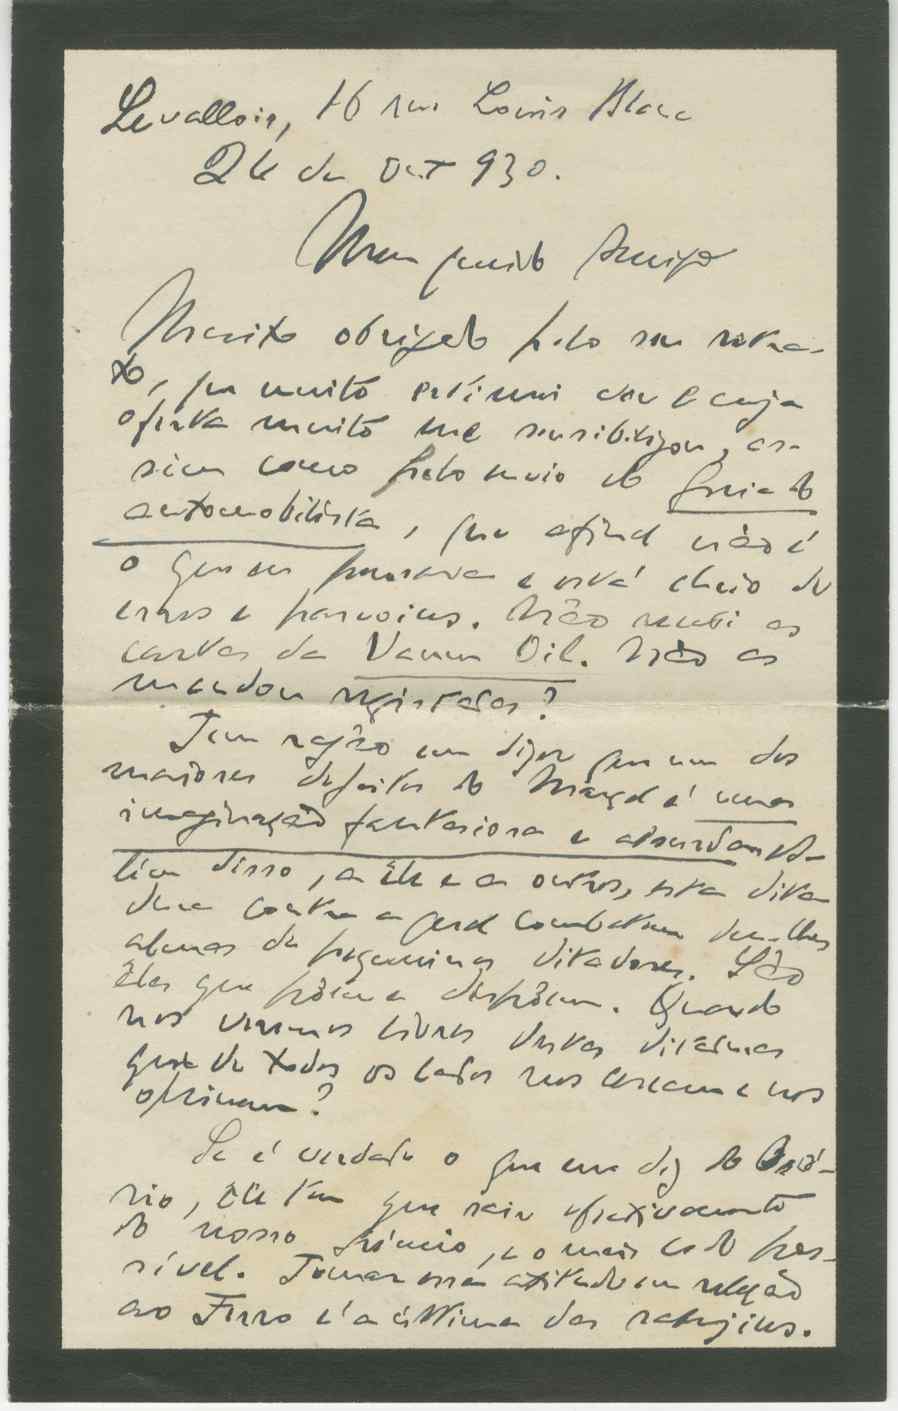 Levallois, 16 rue Louis Blanc
24 de Out 930.
Meu querido Amigo
Muito obrigado pelo seu retra-
to, que muito estimei e cuja
oferta muito me sensibilizou, as-
sim como pelo envio do Guia do
automobilista, que afinal não é
o que eu pensava e está cheio de
erros e parvoices. Não recebi as
cartas da Vacuum Oil. Não as
mandou registadas?
Tem razão em dizer que um dos
maiores defeitos do é uma
imaginação fantasiosa e absurda
disso, a êle e a outros, esta dita-
dura contra a qual combatem deu-lhes
almas de pequeninos ditadores. São
êles que põem e dispõem. Quando
nos veremos livres destas ditaduras
que de todos os lados nos cercam e nos
oprimem?
Se é verdade o que me diz do Osó-
rio, êle tem que sair efectivamente
do nosso grémio, e o mais cedo pos-
sível. Tomar essa atitude em relação
ao Ferro é a última das sabujices.